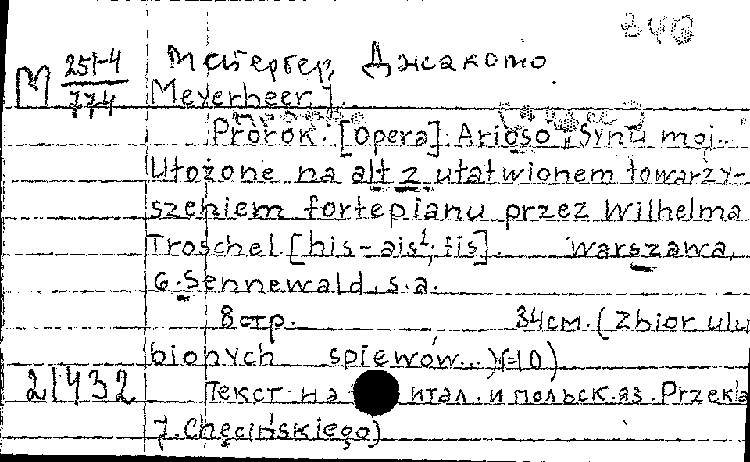 240
М 251-4/774
Мейербер, Джакомо
Meyerbeer J.
Prorok. [Opera]. Arioso „Synu moj..
Ułożone na alt z ułatwionem towarzy-
szeniem fortepianu przez Wilhelma
Troschel [his-ais¹, fis]. Warszawa,
G. Sennewald, s.a.
8 стр. 34 см. (Zbior ulu
bionych spiewów...)(-10)
21432 Текст на итал. и польск. яз. Przekła
J. Chęcińskiego)